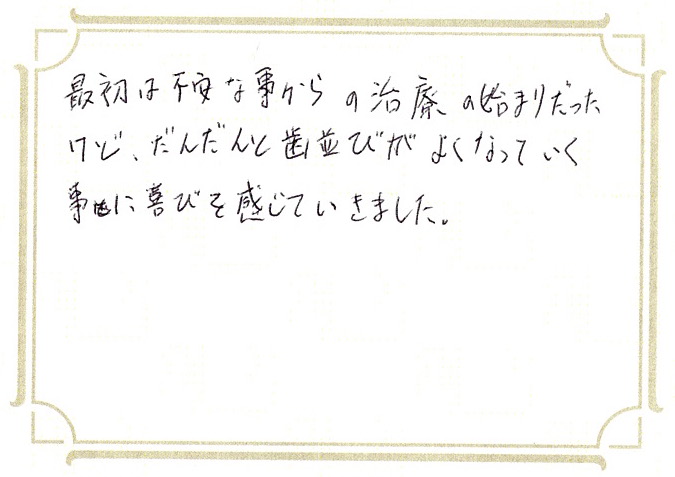 最初は不安な事からの治療の始まりだった
けど、だんだんと歯並びがよくなっていく
事に喜びを感じていきました。